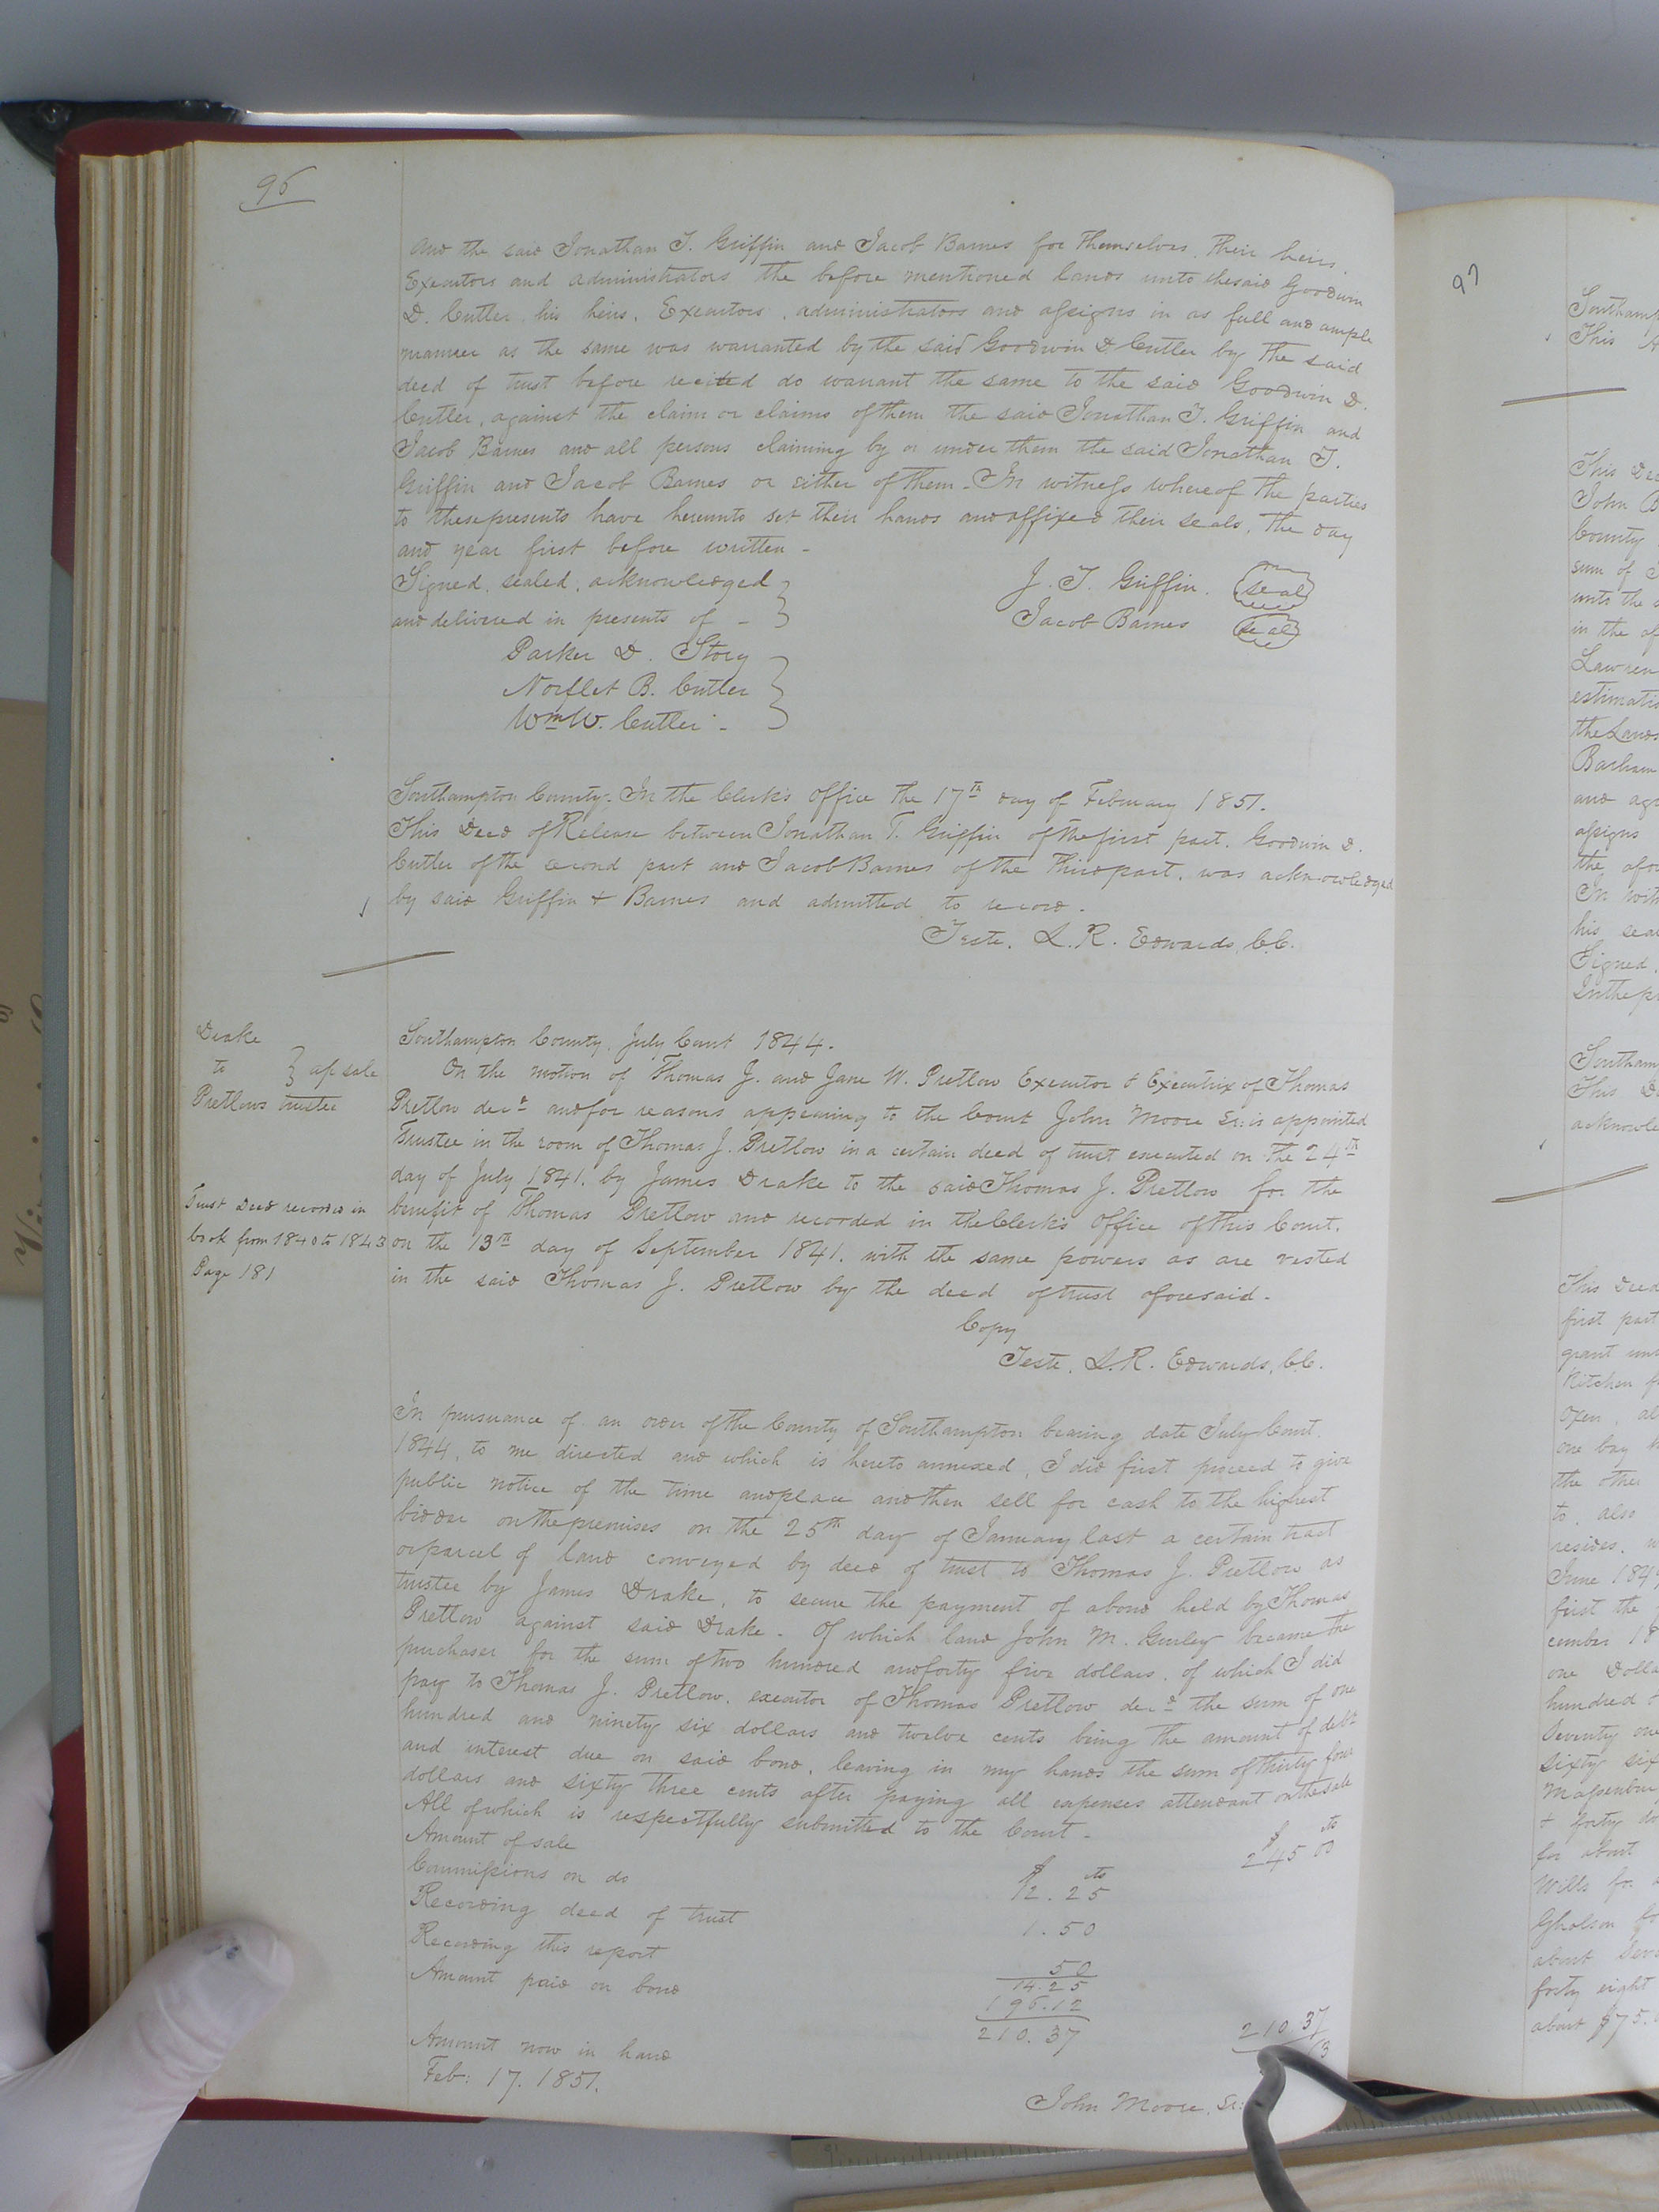 96
And the said Jonathan T. Griffin and Jacob Barnes for themselves, their heirs,
Executors and administrators the before mentioned lands unto the said Goodwin
D. Cutler his heirs, Executors, administrators and assigns in as full and ample
manner as the same was warranted by the said Goodwin D Cutler by the said
deed of trust before recited do warrant the same to the said Goodwin D.
Cutler, against the claim or claims of them the said Jonathan T. Griffin and
Jacob Barnes and all persons claiming by or under them the said Jonathan T.
Griffin and Jacob Barnes or either of them. In witness whereof the parties
to these presents have hereunto set their hands and affixed their seals, the day
and year first before written -
Signed, sealed, acknowledged
and delivered in presents of -
J. T. Griffin. seal
Jacob Barnes seal
Parker D. Story
Norflet B. Cutler
Wm W. Cutler -
Southampton County. In the Clerk's Office the 17th day of February 1851.
This Deed of Release between Jonathan T. Griffin of the first part, Goodwin D.
Cutler of the second part and Jacob Barnes of the third part, was acknowledged
by said Griffin & Barnes and admitted to record.
Teste, L. R. Edwards, C.C.
Drake
to } a/c sale
Pretlows trustee
Southampton County, July Court 1844.
On the motion of Thomas J. and Jane W. Pretlow Executor & Executrix of Thomas
Pretlow decd and for reasons appearing to the Court John Moore Sr: is appointed
Trustee in the room of Thomas J. Pretlow in a certain deed of trust executed on the 24th
day of July 1841. by James Drake to the said Thomas J. Pretlow for the
benefit of Thomas Pretlow and recorded in the Clerk's Office of this Court.
on the 13th day of September 1841. with the same powers as are vested
in the said Thomas J. Pretlow by the deed of trust aforesaid.
Trust Deed recorded in
book from 1840 to 1843
Page 181
Copy
Teste, L. R. Edwards, C.C.
In pursuance of an order of the County of Southampton bearing date July Court
1844, to me directed and which is hereto annexed, I did first proceed to give
public notice of the time and place and then sell for cash to the highest
bidder on the premises on the 25th day of January last a certain tract
or parcel of land conveyed by deed of trust to Thomas J. Pretlow as
trustee by James Drake, to secure the payment of a bond held by Thomas
Pretlow against said Drake. Of which land John M. Gurley became the
purchaser for the sum of two hundred and forty five dollars, of which I did
pay to Thomas J. Pretlow, executor of Thomas Pretlow decd the sum of one
hundred and ninety six dollars and twelve cents being the amount of debt
and interest due on said bond, leaving in my hands the sum of thirty four
dollars and sixty three cents after paying all expenses attendant on the sale
All of which is respectfully submitted to the Court -
Amount of sale $ cts 245 00
Commissions on do $ cts 12.25
Recording deed of trust 1.50
Recording this report 50
14.25
Amount paid on bond 196.12
210.37 210 37
Amount now in hand 63
Feb: 17. 1851.
John Moore, Sr:
97
Southamp
This
This Dee
John B
County
sum of
unto the
in the
Lawren
estimati
the Lands
Barham
and
assigns
the
In wit
his sea
Signed,
In the pr
Southam
This D
acknowle
This Deed
first part
grant
Kitchen
Oxen,
one bay
the other
to, also
resides,
June 184
first the
cember 18
one Dolla
hundred
Seventy one
sixty six
Massenbur
+ forty
for about
Wills for
Gholson
about
forty eight
about $75.